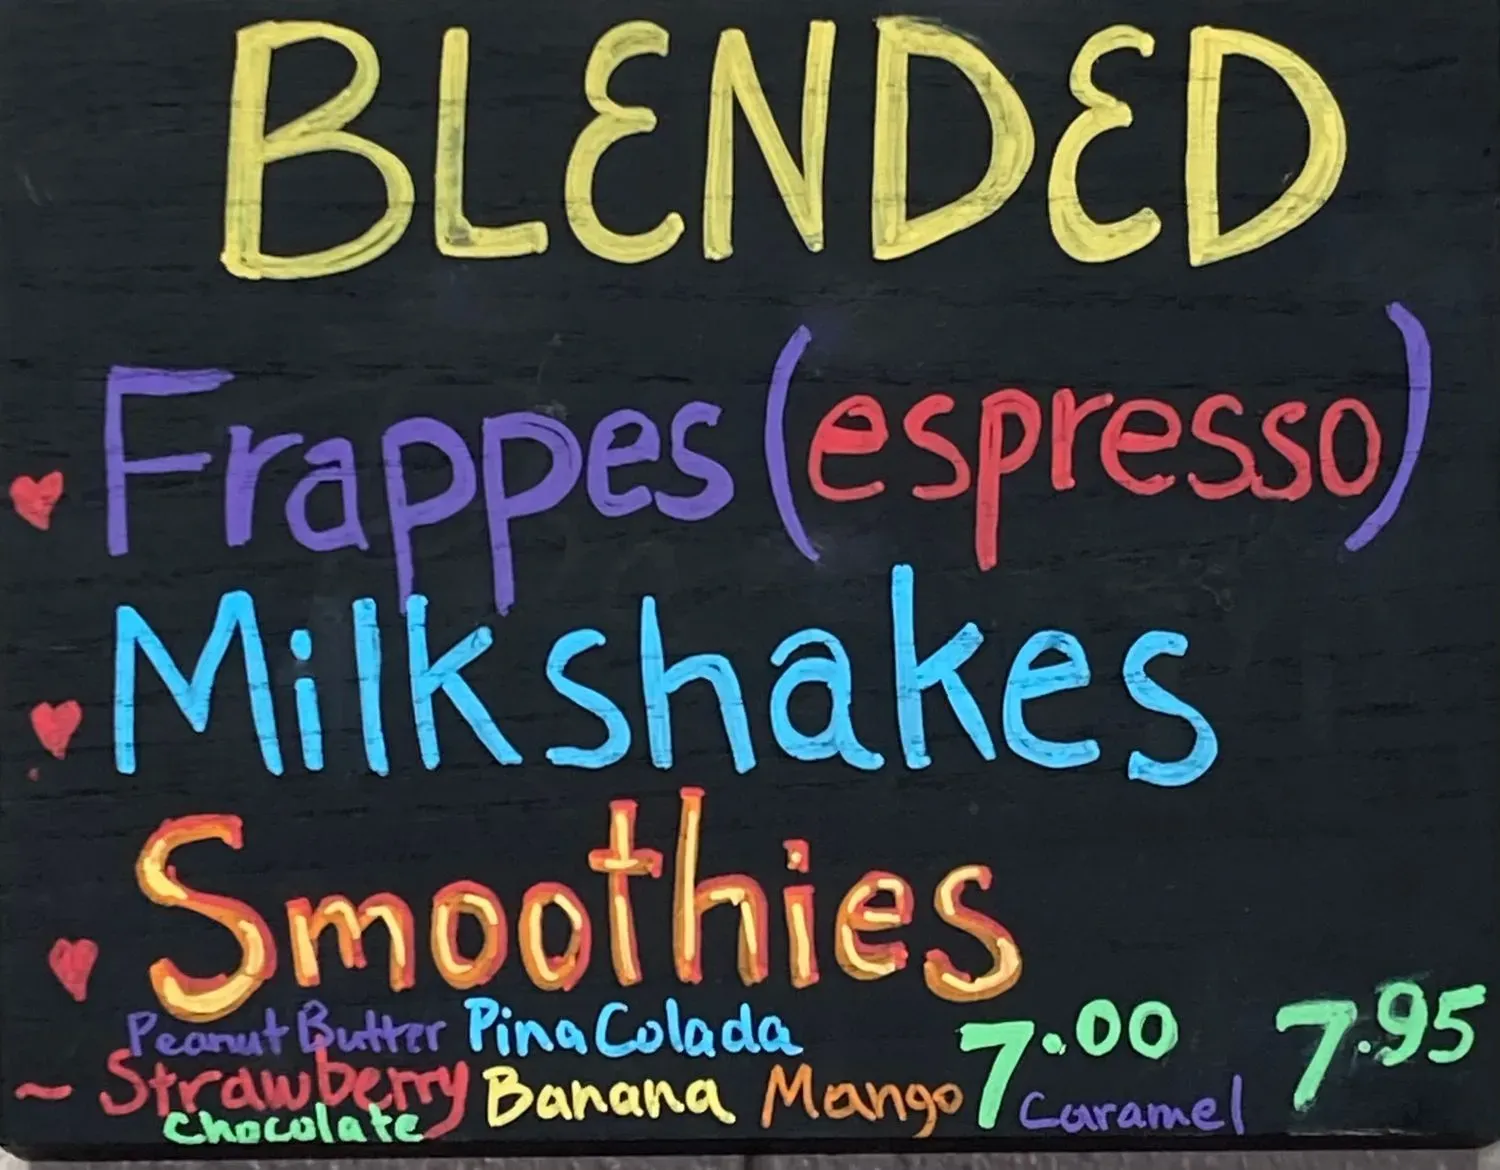 BLENDED
Frappes (espresso)
Milkshakes
Smoothies
Peanut Butter Pina Colada 7.00 7.95
~ Strawberry Banana Mango Caramel
Chocolate